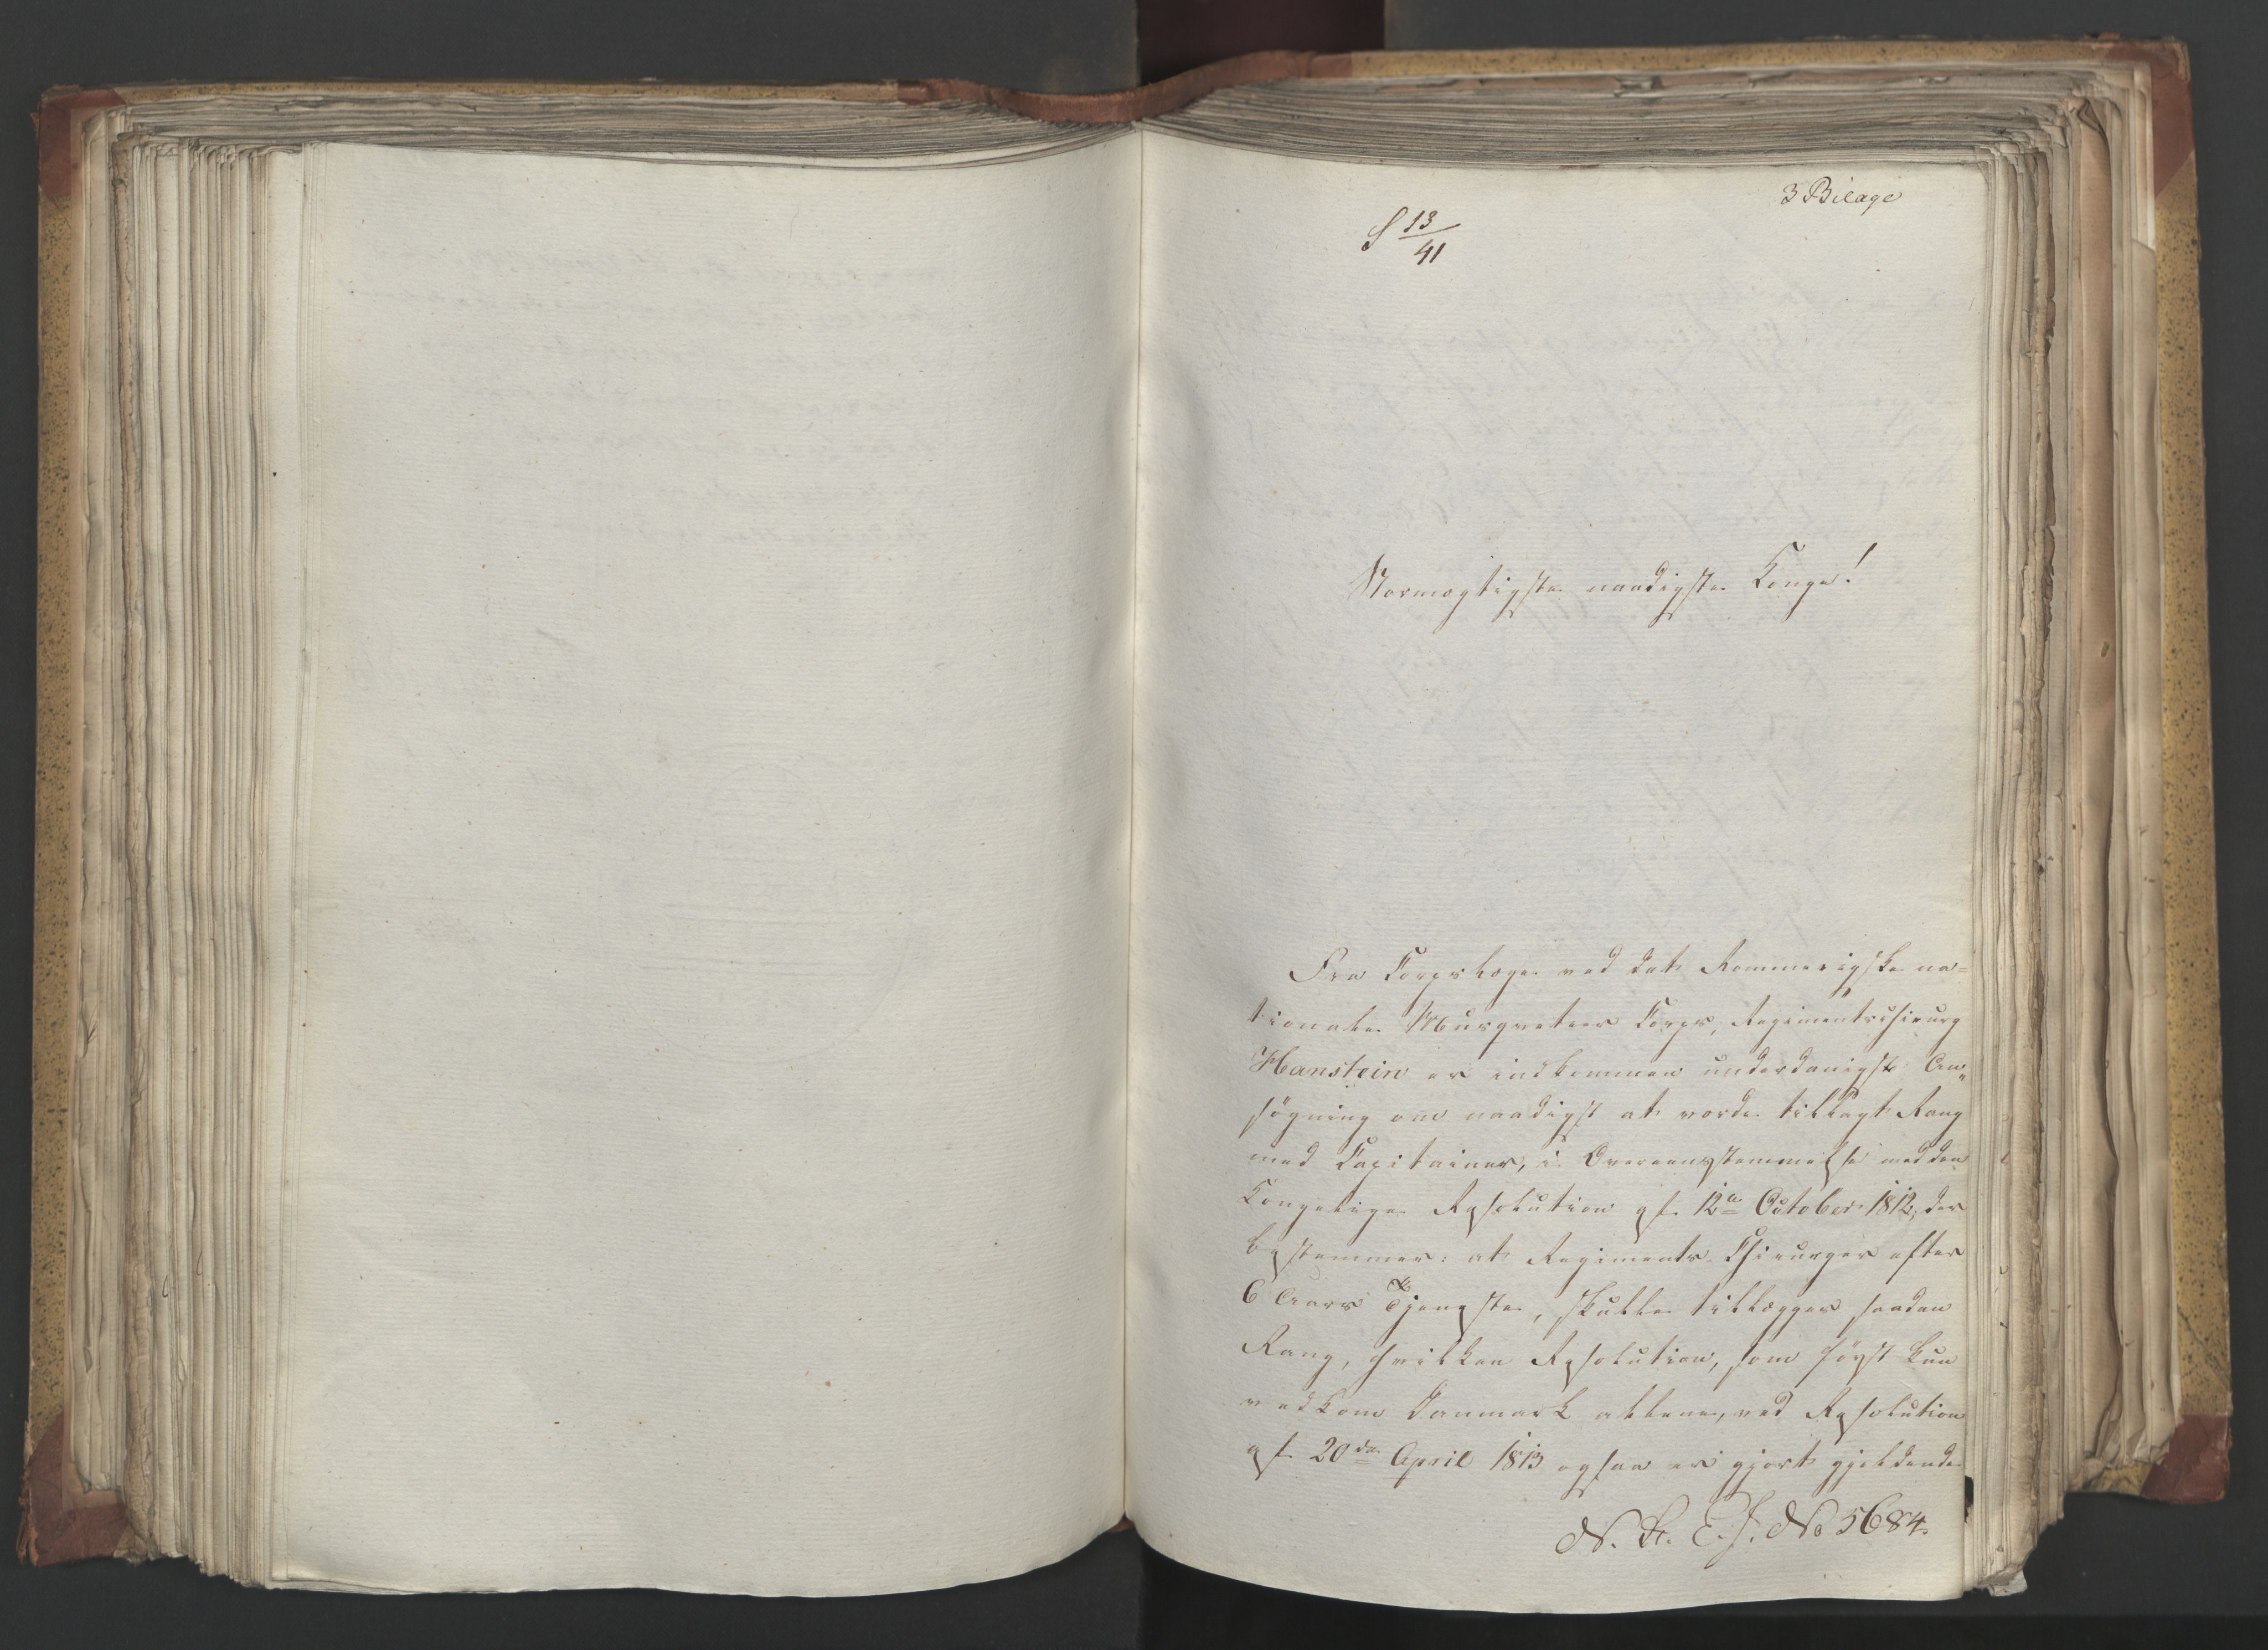 3 Bilage
S 13/41
Stormægtigste naadigste Konge!
Fra Corpslæge ved det Rommerigske na=
tionale Musqueteer Corps, Regimentschirurg
Hanstein er indkommen underdanigst An„
søgning om naadigst at vorde tillagt Rang
med Capitainer, i Overeensstemmelse med den
Kongelige Resolution af 12te October 1812, der
bestemmer: at Regiments Chirurger efter
6 Aars Tjeneste, skulle tillægges saadan
Rang, hvilken Resolution, som først kun
vedkom Danmark allene, ved Resolution
af 20de April 1813 ogsaa er gjort gjeldende
N. E. J. No 5684.